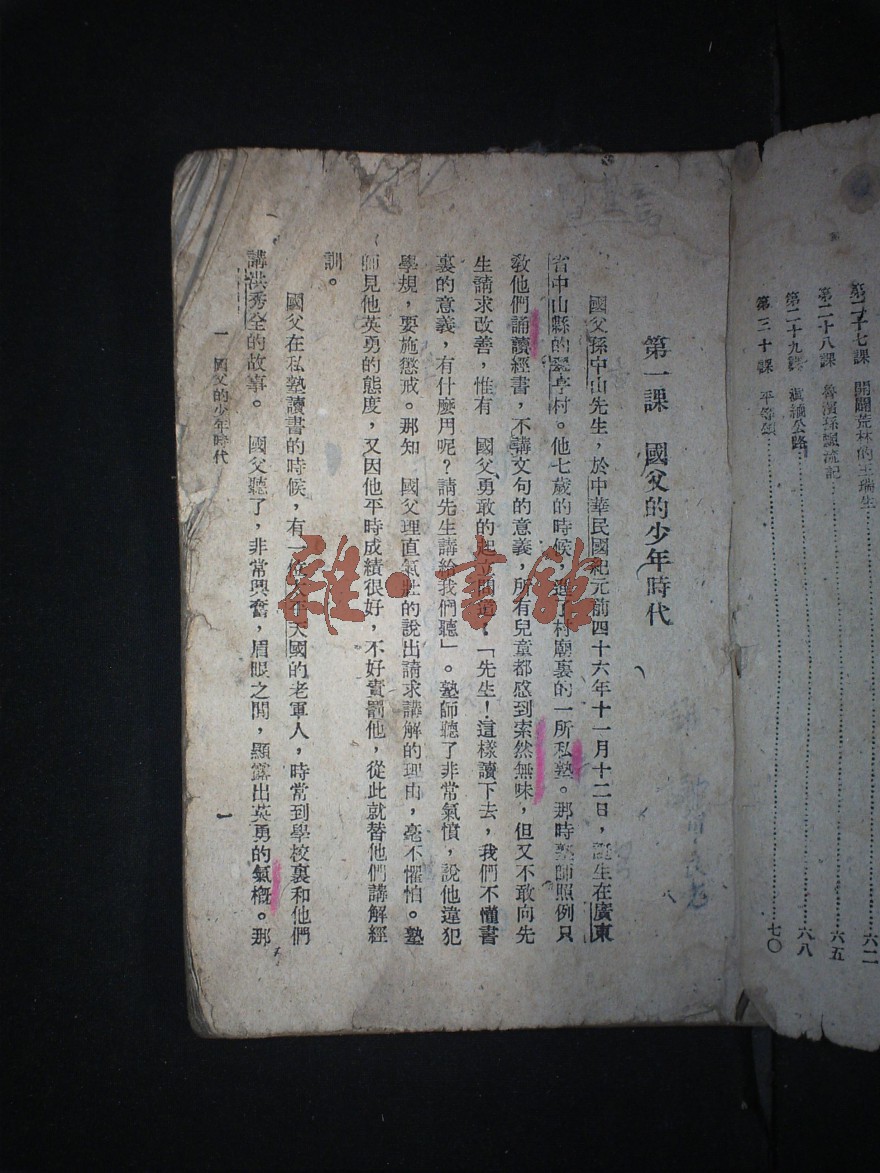 第二十七課 開闢荒林的王瑞生⋯⋯⋯⋯六二
第二十八課 魯濱孫飄流記⋯⋯⋯⋯六五
第二十九課 滇緬公路⋯⋯⋯⋯六八
第三十課 平等頌⋯⋯⋯⋯七〇
第一課 國父的少年時代
國父孫中山先生，於中華民國紀元前四十六年十一月十二日，誕生在廣東
省中山縣的翠亨村。他七歲的時候，進了村廟裏的一所私塾。那時塾師照例只
教他們誦讀經書，不講文句的意義，所有兒童都感到索然無味，但又不敢向先
生請求改善，惟有 國父勇敢的起立問道：「先生！這樣讀下去，我們不懂書
裏的意義，有什麼用呢？請先生講給我們聽」。塾師聽了非常氣憤，說他違犯
學規，要施懲戒。那知 國父理直氣壯的說出請求講解的理由，毫不懼怕。塾
師見他英勇的態度，又因他平時成績很好，不好責罰他，從此就替他們講解經
訓。
國父在私塾讀書的時候，有一位太平天國的老軍人，時常到學校裏和他們
講洪秀全的故事。 國父聽了，非常興奮，眉眼之間，顯露出英勇的氣概。那
一 國父的少年時代
一
雜·書館